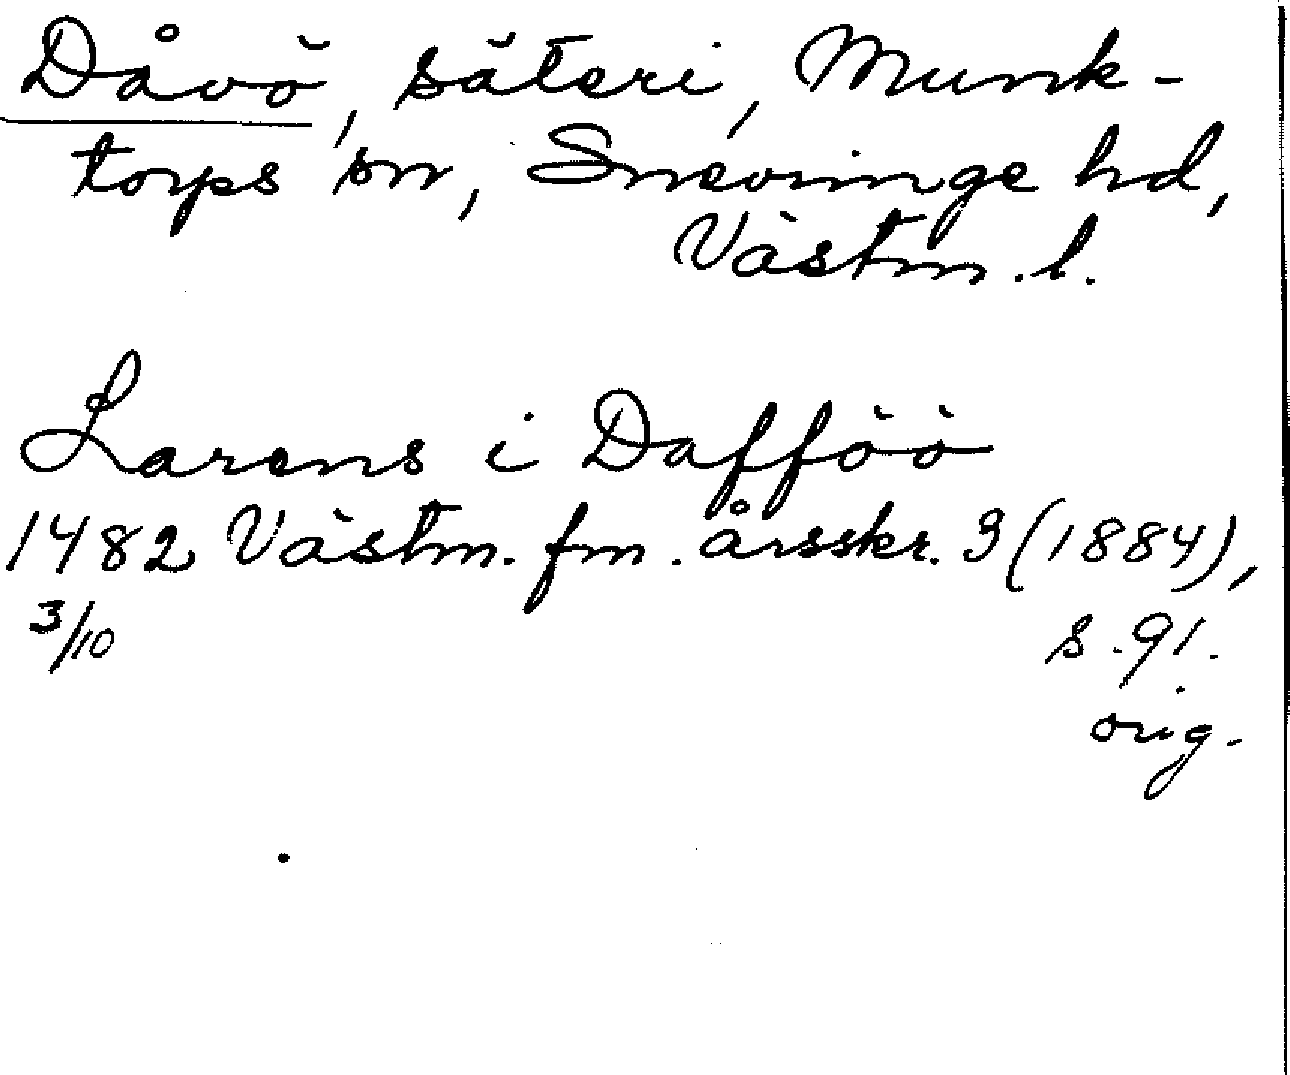 Dåvö, säteri, Munk-
torps sn, Snevringe hd,
Västm. l.
Larens i Dafföö
1482 Västm. fm. årsskr. 3 (1884),
3/10 s. 91.
orig.